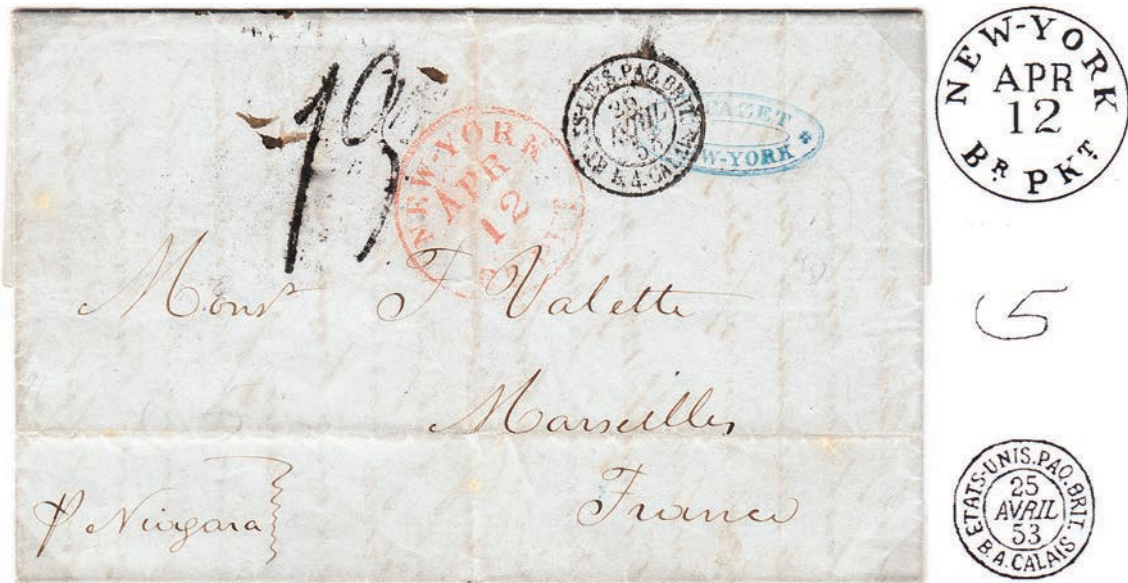 13
NEW-YORK
APR
12
ETATS-UNIS.PAQ.BRIT.
AVRIL
53
B.A.CALAIS
NEW-YORK
Monsr F Valette
Marseilles
France
p Niagara
NEW-YORK
APR
12
BR PKT
5
ETATS-UNIS.PAQ.BRIT.
25
AVRIL
53
B.A.CALAIS